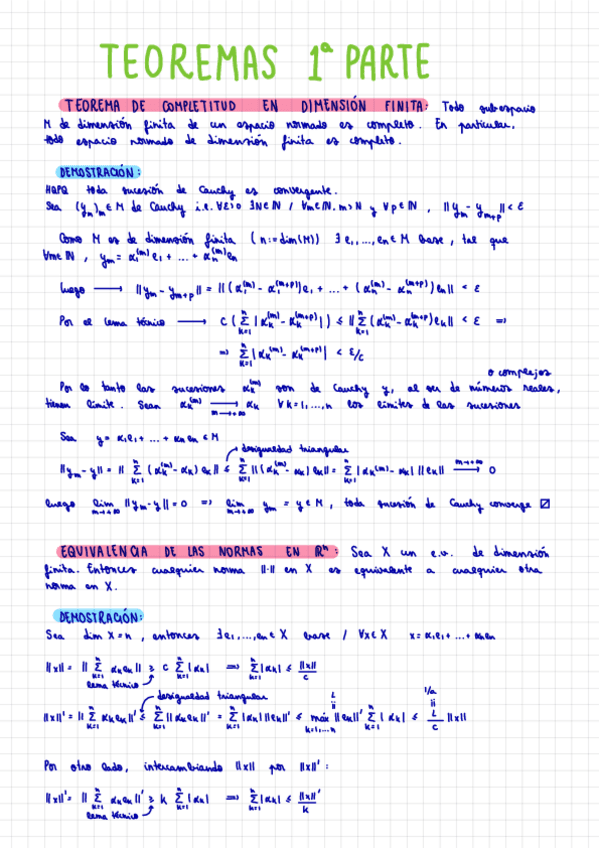 TEOREMAS 1ª PARTE
TEOREMA DE COMPLETITUD EN DIMENSIÓN FINITA: Todo subespacio
M de dimensión finita de un espacio normado es completo. En particular,
todo espacio normado de dimensión finita es completo.
DEMOSTRACIÓN:
HQPQ toda sucesión de Cauchy es convergente.
Sea (yₘ)ₘ ∈ M de Cauchy i.e. ∀ε>0 ∃N∈ℕ / ∀m∈ℕ, m>N y ∀p∈ℕ, ||yₘ - yₘ₊ₚ|| < ε
Como M es de dimensión finita (n:=dim(M)) ∃ e₁,...,eₙ∈M base, tal que
∀m∈ℕ, yₘ = α₁⁽ᵐ⁾e₁ + ... + αₙ⁽ᵐ⁾eₙ
luego ⟶ ||yₘ - yₘ₊ₚ|| = ||(α₁⁽ᵐ⁾ - α₁⁽ᵐ⁺ᵖ⁾)e₁ + ... + (αₙ⁽ᵐ⁾ - αₙ⁽ᵐ⁺ᵖ⁾)eₙ|| < ε
Por el lema técnico ⟶ c(Σₖ₌₁ⁿ |αₖ⁽ᵐ⁾ - αₖ⁽ᵐ⁺ᵖ⁾|) ≤ ||Σₖ₌₁ⁿ (αₖ⁽ᵐ⁾ - αₖ⁽ᵐ⁺ᵖ⁾)eₖ|| < ε ⇒
⇒ Σₖ₌₁ⁿ |αₖ⁽ᵐ⁾ - αₖ⁽ᵐ⁺ᵖ⁾| < ε/c
o complejos
Por lo tanto las sucesiones αₖ⁽ᵐ⁾ son de Cauchy y, al ser de números reales,
tienen límite. Sean αₖ⁽ᵐ⁾ ⟶ αₖ m→+∞ ∀k=1,...,n los límites de las sucesiones
Sea y = α₁e₁ + ... + αₙeₙ ∈ M
desigualdad triangular
||yₘ - y|| = ||Σₖ₌₁ⁿ (αₖ⁽ᵐ⁾ - αₖ)eₖ|| ≤ Σₖ₌₁ⁿ ||(αₖ⁽ᵐ⁾ - αₖ)eₖ|| = Σₖ₌₁ⁿ |αₖ⁽ᵐ⁾ - αₖ| ||eₖ|| ⟶ 0 m→+∞
luego lim m→+∞ ||yₘ - y|| = 0 ⇒ lim m→+∞ yₘ = y ∈ M, toda sucesión de Cauchy converge ☑
EQUIVALENCIA DE LAS NORMAS EN ℝⁿ: Sea X un e.v. de dimensión
finita. Entonces cualquier norma ||·|| en X es equivalente a cualquier otra
norma en X.
DEMOSTRACIÓN:
Sea dim X = n, entonces ∃ e₁,...,eₙ∈X base / ∀x∈X x = α₁e₁ + ... + αₙeₙ
||x|| = ||Σₖ₌₁ⁿ αₖeₖ|| ≥ c Σₖ₌₁ⁿ |αₖ| ⇒ Σₖ₌₁ⁿ |αₖ| ≤ ||x||/c
lema técnico
desigualdad triangular
L
1/a
||x||' = ||Σₖ₌₁ⁿ αₖeₖ||' ≤ Σₖ₌₁ⁿ ||αₖeₖ||' = Σₖ₌₁ⁿ |αₖ| ||eₖ||' ≤ máx k=1,...,n ||eₖ||' Σₖ₌₁ⁿ |αₖ| ≤ L/c ||x||
Por otro lado, intercambiando ||x|| por ||x||':
||x||' = ||Σₖ₌₁ⁿ αₖeₖ||' ≥ k Σₖ₌₁ⁿ |αₖ| ⇒ Σₖ₌₁ⁿ |αₖ| ≤ ||x||'/k
lema técnico